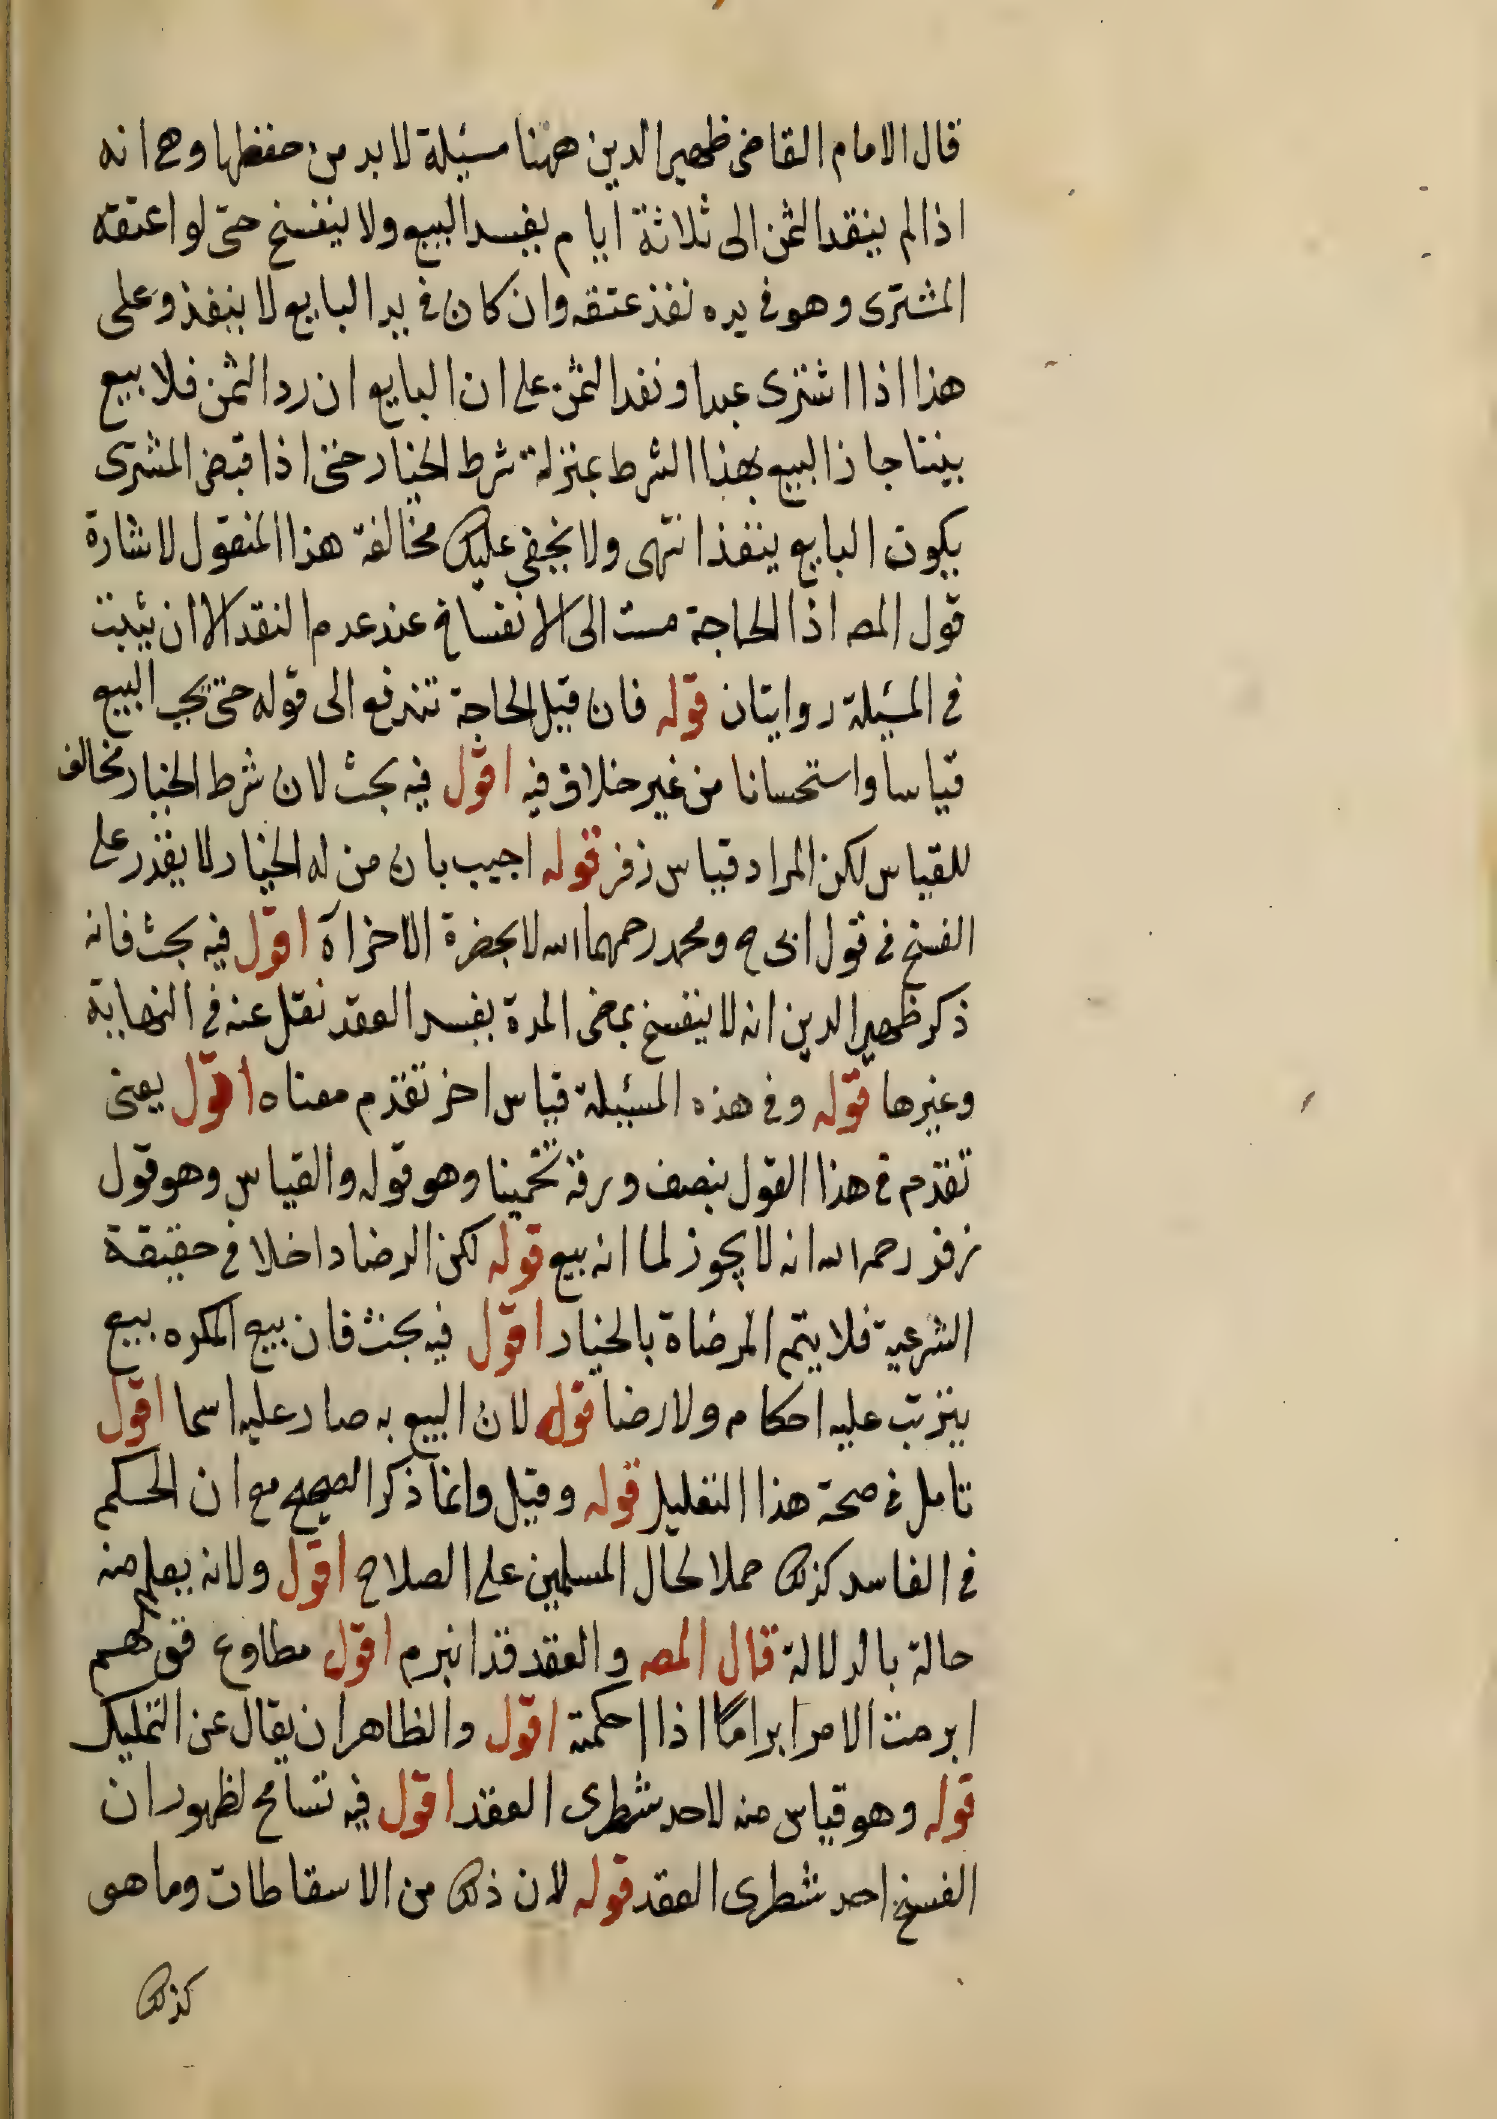 قال الامام القاضى ظهير الدين ههنا مسئلة لا بد من حفظها وهى انه
اذا لم ينقد الثمن الى ثلاثة ايام يفسد البيع ولا ينفسخ حتى لو اعتقه
المشترى وهو فى يده نفذ عتقه وان كان فى يد البايع لا ينفذ وعلى
هذا اذا اشترى عبدا ونقد الثمن على ان البايع ان رد الثمن فلا بيع
بيننا جاز البيع بهذا الشرط بمنزلة شرط الخيار حتى اذا قبض المشترى
يكون البايع ينفذ انتهى ولا يخفى عليك مخالفة هذا المنقول لاشارة
قول المصـ اذا الحاجة مست الى الانفساخ عند عدم النقد الا ان يثبت
فى المسئلة روايتان قوله فان قيل الحاجة تندفع الى قوله حتى يجب البيع
قياسا واستحسانا من غير خلاف فيه اقول فيه بحث لان شرط الخيار مخالف
للقياس لكن المراد قياس زفر قوله اجيب بان من له الخيار لا يقدر على
الفسخ فى قول ابى ح ومحمد رحمهما الله لا بحضرة الاخر اه اقول فيه بحث فانه
ذكر ظهير الدين انه لا ينفسخ بمضى المدة يفسد العقد نقل عنه فى النهاية
وغيرها قوله وفى هذه المسئلة قياس اخر تقدم معناه اقول يعنى
تقدم فى هذا القول بنصف ورقة تخمينا وهو قوله والقياس وهو قول
زفر رحمه الله انه لا يجوز لما انه بيع قوله لكن الرضا داخلا فى حقيقة
الشرعية فلا يتم المرضاة بالخيار اقول فيه بحث فان بيع المكره بيع
يترتب عليه احكام ولا رضا قوله لان البيع به صار عليه اسما اقول
تامل فى صحة هذا التعليل قوله وقيل وانما ذكر الصحيح مع ان الحكم
فى الفاسد كذلك حملا لحال المسلمين على الصلاح اقول ولانه يعلم منه
حالة بالدلالة قال المصـ والعقد قد انبرم اقول مطاوع قولهم
ابرمت الامر ابراما اذا احكمته اقول والظاهر ان يقال عن التمليك
قوله وهو قياس منه لاحد شطرى العقد اقول فيه تسامح لظهور ان
الفسخ احد شطرى العقد قوله لان ذلك من الاسقاطات وما هو
كذلك